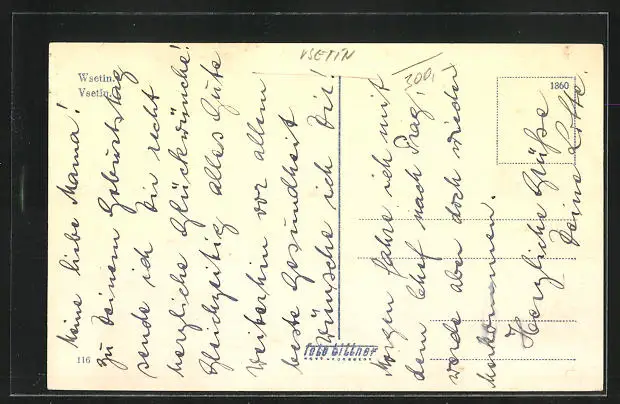 VSETÍN
200,
Wsetin.
Vsetín.
1360
116
Foto Bittner
Meine liebe Mama!
Zu Deinem Geburtstag
sende ich Dir recht
herzliche Glückwünsche!
Gleichzeitig alles Gute
weiterhin vor allem
beste Gesundheit
wünsche ich Dir!
Morgen fahre ich mit
dem Chef nach Prag,
werde aber doch wieder
Herzliche Grüße
Deine Lotte.